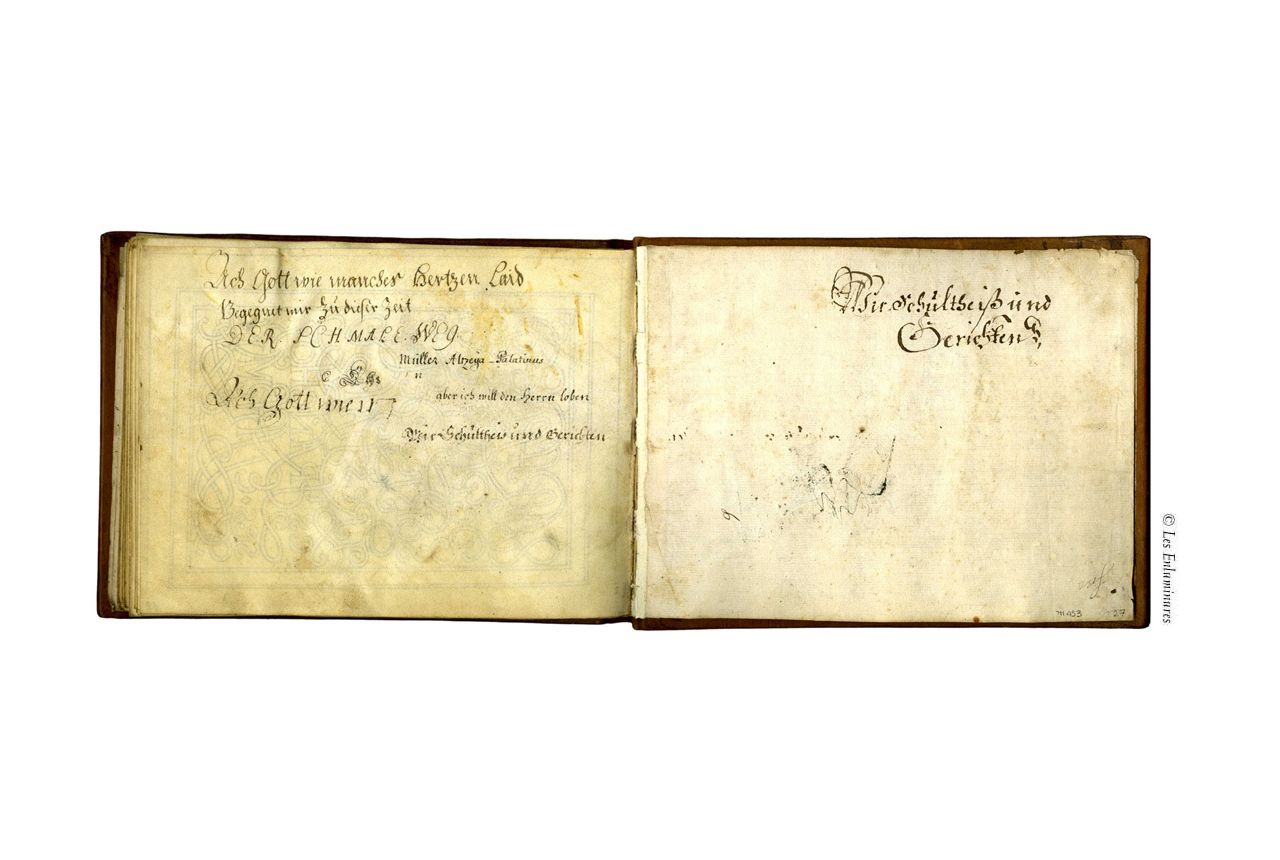 Ach Gott wie mancher Hertzen Laid
Begegnet mir Zŭ dieser Zeit
DER. SCHMALE. WEG
Müller Altzeÿa-Palatinus
n
Ach Gott wie
aber ich will den Herrn loben
Wir Schŭltheis ŭnd Gerichten
Wir Schŭltheiß ŭnd
Gerichten
9
m 453
27
© Les Enluminures